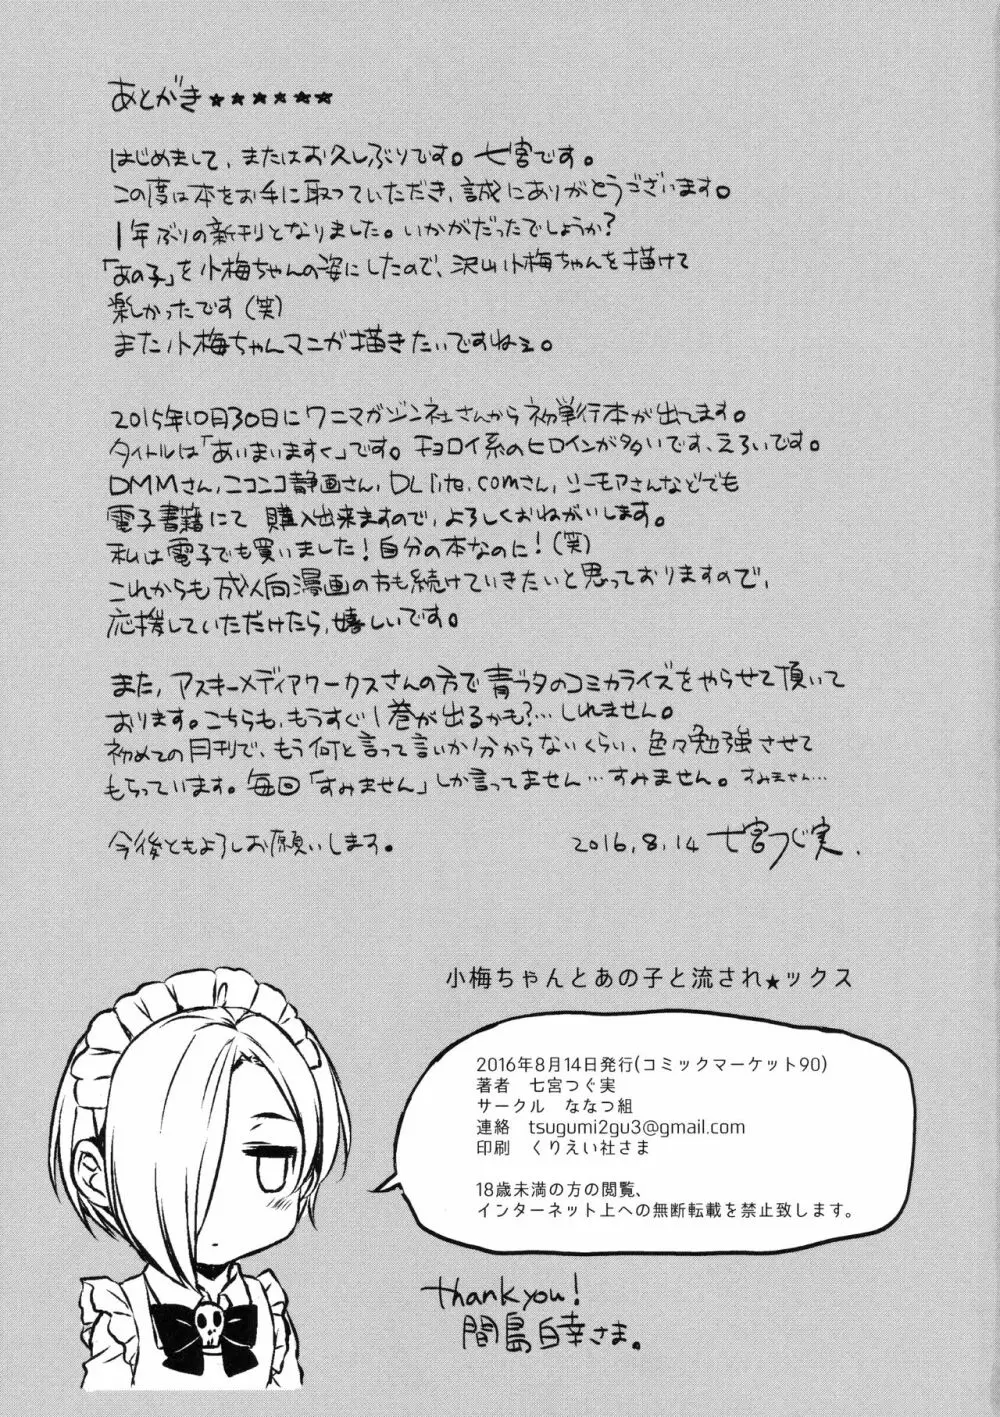 あとがき★★★★★★
はじめまして、またはお久しぶりです。七宮です。
この度は本をお手に取っていただき、誠にありがとうございます。
1年ぶりの新刊となりました。いかがだったでしょうか?
「あの子」を小梅ちゃんの姿にしたので、沢山小梅ちゃんを描けて
楽しかったです(笑)
また小梅ちゃんマンガ描きたいですねェ。
2015年10月30日にワニマガジン社さんから初単行本が出てます。
タイトルは「あいまいますく」です。チョロイ系のヒロインが多いです、えろいです。
DMMさん,ニコニコ静画さん,DLlite.comさん,シーモアさんなどでも
電子書籍にて購入出来ますので、よろしくおねがいします。
私は電子でも買いました!自分の本なのに!(笑)
これからも成人向漫画の方も続けていきたいと思っておりますので、
応援していただけたら、嬉しいです。
また、アスキーメディアワークスさんの方で青ブタのコミカライズをやらせて頂いて
おります。こちらも、もうすぐ1巻が出るかも?…しれません。
初めての月刊で、もう何と言って言いか分からないくらい、色々勉強させて
もらっています。毎回「すみません」しか言ってません…すみません。すみません…
今後ともよろしお願いします。
2016,8,14 七宮つぐ実.
小梅ちゃんとあの子と流され★ックス
2016年8月14日発行(コミックマーケット90)
著者 七宮つぐ実
サークル ななつ組
連絡 tsugumi2gu3@gmail.com
印刷 くりえい社さま
18歳未満の方の閲覧、
インターネット上への無断転載を禁止致します。
thank you!
間島白幸さま。